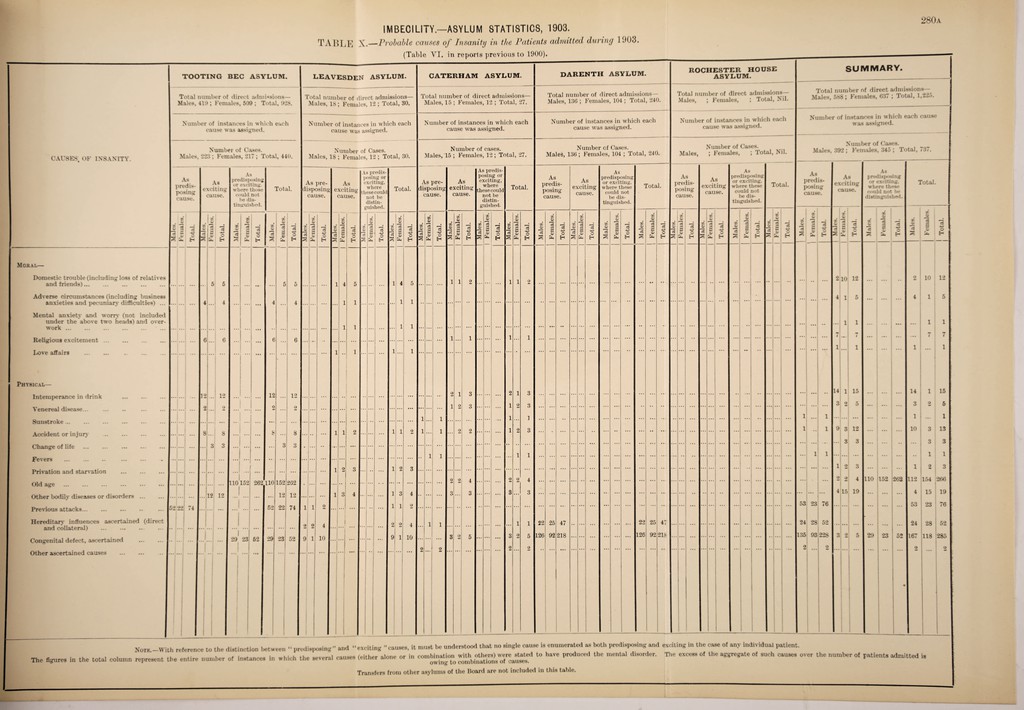 280A
IMBECILITY.—ASYLUM STATISTICS, 1903.
TABLE X.—Probable causes of Insanity in the Patients admitted during 1903.
(Table VI. in reports previous to 1900).
CAUSES OF INSANITY.
TOOTING BEC ASYLUM.
Total number of direct admissions—
Males, 419; Females, 509; Total, 928.
Number of instances in which each
cause was assigned.
Number of Cases.
Males, 223; Females, 217; Total, 440.
LEAVESDEN ASYLUM.
Total number of direct admissions—
Males, 18; Females, 12; Total, 30.
Number of instances in which each
cause was assigned.
Number of Cases.
Males, 18; Females, 12; Total, 30.
CATERHAM ASYLUM.
Total number of direct admissions—
Males, 15; Females, 12; Total, 27.
Number of instances in which each
cause was assigned.
Number of cases.
Males, 15; Females, 12; Total, 27.
DARENTH ASYLUM.
Total number of direct admissions—
Males, 136; Females, 104; Total, 240.
Number of instances in which each
cause was assigned.
Number of Cases.
Males, 136; Females, 104; Total, 240.
ROCHESTER HOUSE
ASYLUM.
Total number of direct admissions—
Males, ; Females, ; Total, Nil.
Number of instances in which each
cause was assigned.
Number of Cases.
Males, ; Females, ; Total, Nil.
SUMMARY.
Total number of direct admissions—
Males, 588; Females, 637; Total, 1,225.
Number of instances in which each cause
was assigned.
Number of Cases.
Males, 392; Females, 345; Total, 737.
As predis-posing cause. As exciting cause. As predisposing or exciting, where these could not be dis-tinguished. Total.
Males. Females. Total.
MORAL—
Domestic trouble (including loss of relatives
and friends)... ... 5 5 ... 5 5 ... 1 4 5 ... 1 4 5 ... 1 1 2 ... 1 1 2 ... 2 10 12 ... 2 10 12
Adverse circumstances (including business
anxieties and pecuniary difficulties) ... 4 ... 4 ... 4 ... 4 ... 1 1 ... 1 1 ... 4 1 5 ... 4 1 5
Mental anxiety and worry (not included
under the above two heads) and over-
work ... ... 1 1 ... 1 1 ... 1 1 ... 1 1
Religious excitement ... 6 ... 6 ... 6 ... 6 ... 1 ... 1 ... 1 ... 1 ... 7 ... 7 ... 7 7
Love affairs ... 1 ... 1 ... 1 ... 1 ... 1 ... 1 ... 1 ... 1
PHYSICAL—
Intemperance in drink ... 12 ... 12 ... 12 ... 12 ... 2 1 3 ... 2 1 3 ... 14 1 15 ... 14 1 15
Venereal disease... ... 2 ... 2 ... 2 ... 2 ... 1 2 3 ... 1 2 3 ... 3 2 5 ... 3 2 5
Sunstroke ... ... 1 ... 1 ... 1 ... 1 ... 1 ... 1 ... 1 ... 1
Accident or injury ... 8 ... 8 ... 8 ... 8 ... 1 1 2 ... 1 1 2 1 ... 1 ... 2 2 ... 1 2 3 ... 1 ... 1 9 3 12 ... 10 3 13
Change of life ... 3 3 ... 3 3 ... 3 3 ... 3 3
Fevers ... 1 1 ... 1 1 ... 1 1 ... 1 1
Privation and starvation ... 1 2 3 ... 1 2 3 ... 1 2 3 ... 1 2 3
Old age ... 110 152 262 110 152 262 ... 2 2 4 ... 2 2 4 ... 2 2 4 110 152 262 112 154 266
Other bodily diseases or disorders ... 12 12 ... 12 12 ... 1 3 4 ... 1 3 4 ... 3 ... 3 ... 3 ... 3 ... 4 15 19 ... 4 15 19
Previous attacks... 52 22 74 ... 52 22 74 1 1 2 ... 1 1 2 ... 53 23 76 ... 53 23 76
Hereditary influences ascertained (direct
and collateral) ... 2 2 4 ... 2 2 4 ... 1 1 ... 1 1 22 25 47 ... 22 25 47 ... 24 28 52 ... 24 28 52
Congenital defect, ascertained ... 29 23 52 29 23 52 9 1 10 ... 9 1 10 ... 3 2 5 ... 3 2 5 126 92 218 ... 126 92 218 ... 135 93 228 3 2 5 29 23 52 167 118 285
Other ascertained causes ... 2 ... 2 ... 2 ... 2 ... 2 ... 2 ... 2 ... 2
NOTE.—With reference to the distinction between "predisposing" and "exciting" causes, it must be understood that no single cause is enumerated as both predisposing and exciting in the case of any individual patient.
The figures in the total column represent the entire number of instances in which the several causes (either alone or in combination with others) were stated to have produced the mental disorder. The excess of the aggregate of such causes over the number of patients admitted is
owing to combinations of causes.
Transfers from other asylums of the Board are not included in this table.